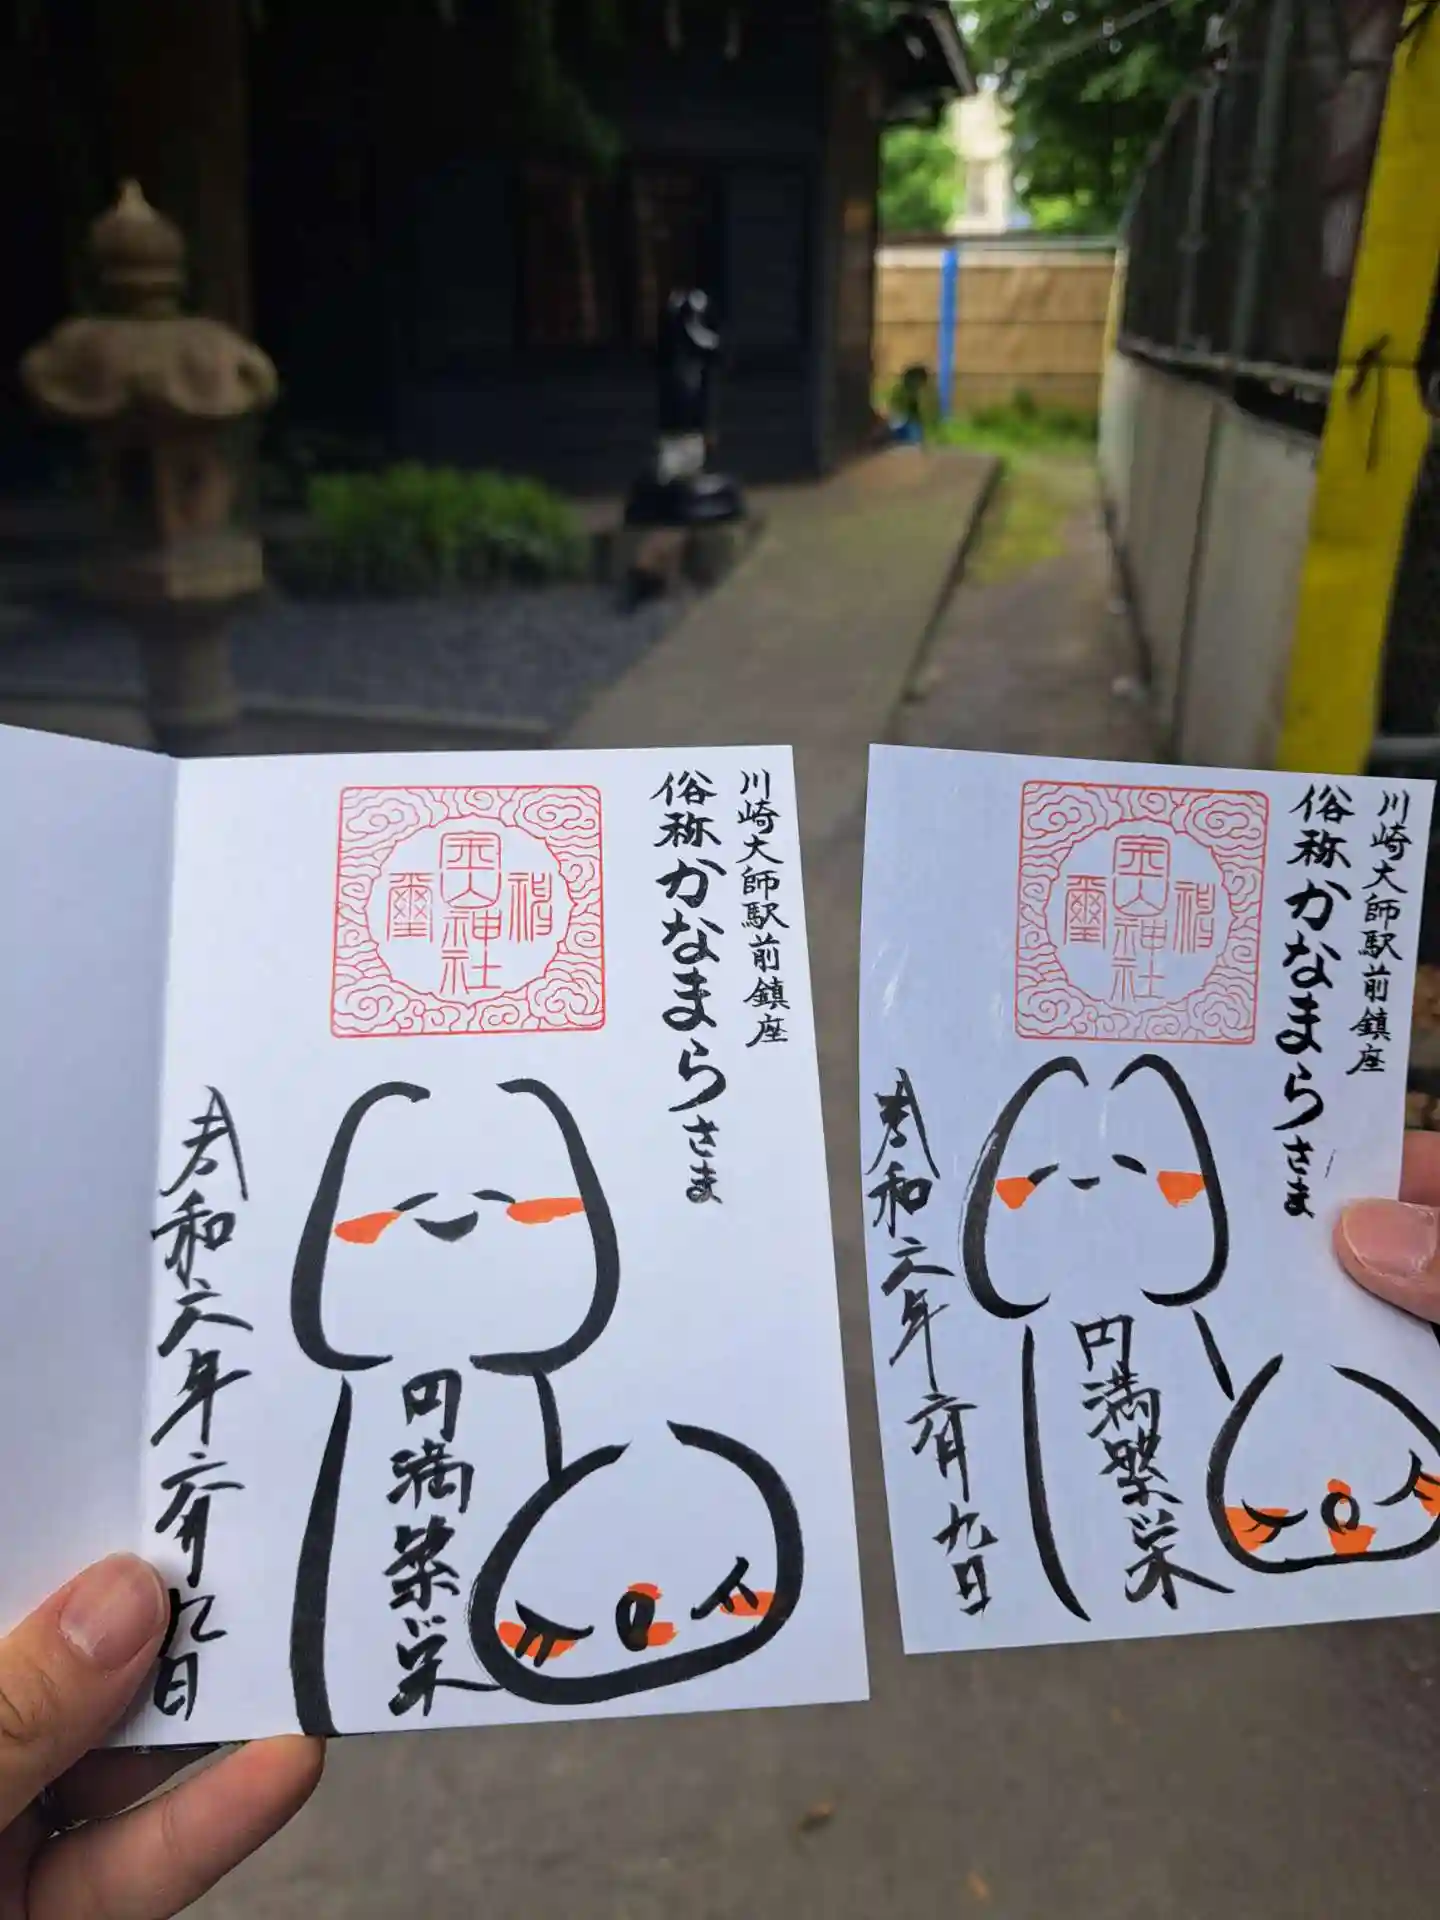 川崎大師駅前鎮座
俗称かなまらさま
金山神社
祝
璽
円満繁栄
令和六年六月九日
川崎大師駅前鎮座
俗称かなまらさま
金山神社
祝
璽
円満繁栄
令和六年六月九日